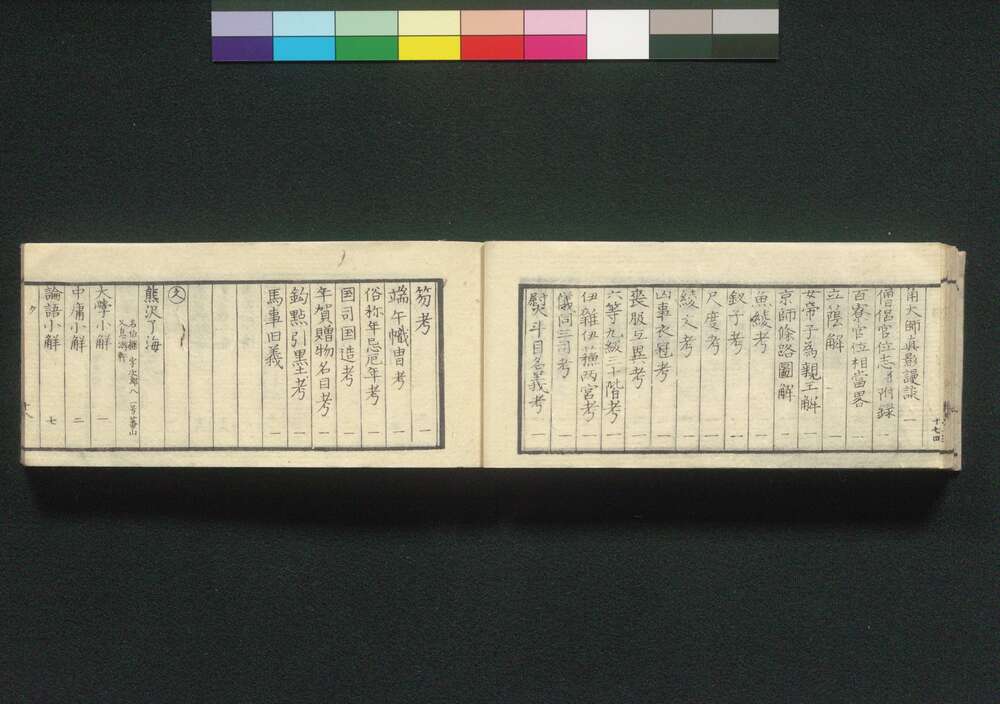 角大師真影謾談 一
僧侶官位志并附録 二
百寮官位相當畧 一
立蔭解 一
女帝子為親王解 一
京師條路圖解 二
魚綾考 一
釵子考 一
尺度考 一
綾文考 一
凶事衣冠考 一
喪服互異考 一
六等九級三十階考 一
伊雜伊穗兩宮考 一
儀同三司考 一
熨斗目名義考 一
十七四
笏考 一
端午幟冑考 一
俗称年忌厄年考 一
国司国造考 一
年賀贈物名目考 一
鈎點引墨考 一
馬事旧義 一
文
熊沢了海
名伯継 字次郎八 号蕃山
大學小解 一
中庸小解 二
論語小解 七
ク
十八